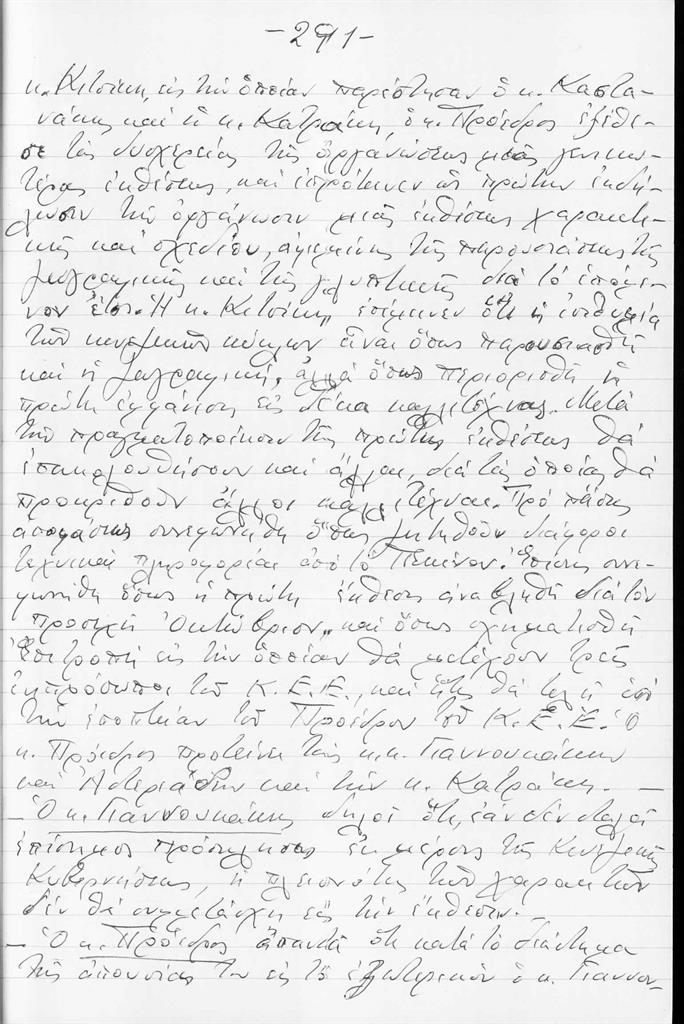 -291-
κ. Κιτσίκη, εἰς τὴν ὁποίαν παρέστησαν ὁ κ. Καστα-
νάκης καὶ ἡ κ. Κατράκη, ὁ κ. Πρόεδρος ἐξέθε-
σε τὰς δυσχερείας τῆς ὀργανώσεως μιᾶς γενικω-
τέρας ἐκθέσεως, καὶ ἐπρότεινεν ὡς πρώτην ἐκδή-
λωσιν τὴν ὀργάνωσιν μιᾶς ἐκθέσεως χαρακτι-
κῆς καὶ σχεδίου, ἀφιεμένης τῆς παρουσιάσεως τῆς
ζωγραφικῆς καὶ τῆς γλυπτικῆς διὰ τὸ ἑπόμε-
νον ἔτος. Ἡ κ. Κιτσίκη ἐπέμεινεν ὅτι ἡ ἐπιθυμία
τῶν κινεζικῶν κύκλων εἶναι ὅπως παρουσιασθῆ
καὶ ἡ ζωγραφική, ἀλλὰ ὅπως περιορισθῆ ἡ
πρώτη ἐμφάνισις εἰς δέκα καλλιτέχνας. Μετὰ
τὴν πραγματοποίησιν τῆς πρώτης ἐκθέσεως θὰ
ἐπακολουθήσουν καὶ ἄλλαι, διὰ τὰς ὁποίας θὰ
προκριθοῦν ἄλλοι καλλιτέχναι. Πρὸ πάσης
ἀποφάσεως συνεφωνήθη ὅπως ζητηθοῦν διάφοροι
τεχνικαὶ πληροφορίαι ἀπὸ τὸ Πεκῖνον. Ἐπίσης συνε-
φωνήθη ὅπως ἡ πρώτη ἔκθεσις ἀναβληθῆ διὰ τὸν
προσεχῆ Ὀκτώβριον, καὶ ὅπως σχηματισθῆ
Ἐπιτροπὴ εἰς τὴν ὁποίαν θὰ μετέχουν τρεῖς
ἐκπρόσωποι τοῦ Κ.Ε.Ε., καὶ ἥτις θὰ τελῆ ὑπὸ
τὴν ἐποπτείαν τοῦ Προέδρου τοῦ Κ.Ε.Ε. Ὁ
κ. Πρόεδρος προτείνει τοὺς κ.κ. Γιαννουκάκην
καὶ Ἀστεριάδην καὶ τὴν κ. Κατράκη. —
— Ὁ κ. Γιαννουκάκης δηλοῖ ὅτι, ἐὰν δὲν σταλῆ
ἐπίσημος πρόσκλησις ἐκ μέρους τῆς Κινεζικῆς
Κυβερνήσεως, ἡ πλειονότης τῶν χαρακτῶν
δὲν θὰ συμμετάσχη εἰς τὴν ἔκθεσιν. —
— Ὁ κ. Πρόεδρος ἀπαντᾶ ὅτι κατὰ τὸ διάστημα
τῆς ἀπουσίας του εἰς τὸ ἐξωτερικὸν ὁ κ. Γιαννου-